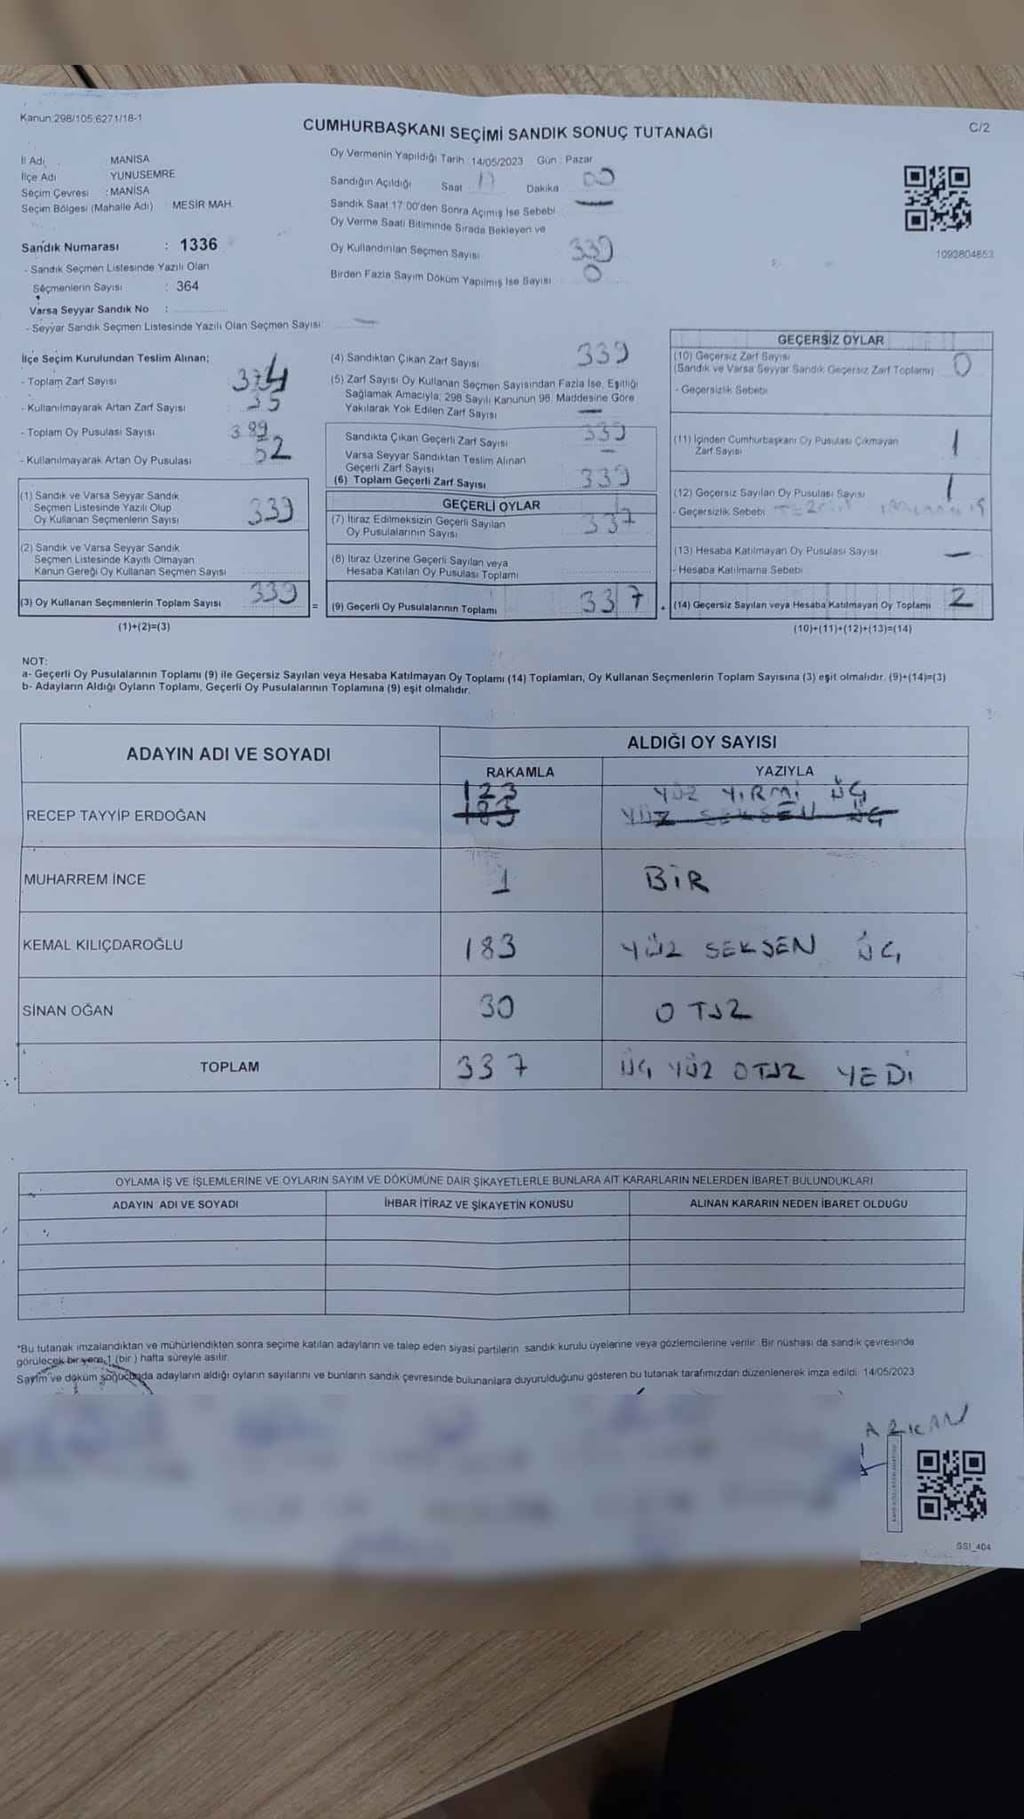 Kanun:298/105;6271/18-1
C/2
CUMHURBAŞKANI SEÇİMİ SANDIK SONUÇ TUTANAĞI
İl Adı : MANİSA
İlçe Adı : YUNUSEMRE
Seçim Çevresi : MANİSA
Seçim Bölgesi (Mahalle Adı) : MESİR MAH.
Sandık Numarası : 1336
- Sandık Seçmen Listesinde Yazılı Olan
Seçmenlerin Sayısı : 364
Varsa Seyyar Sandık No :
- Seyyar Sandık Seçmen Listesinde Yazılı Olan Seçmen Sayısı: —
Oy Vermenin Yapıldığı Tarih : 14/05/2023 Gün : Pazar
Sandığın Açıldığı Saat 17 Dakika 00
Sandık Saat 17:00'den Sonra Açımış İse Sebebi —
Oy Verme Saati Bitiminde Sırada Bekleyen ve
Oy Kullandırılan Seçmen Sayısı 339
Birden Fazla Sayım Döküm Yapılmış İse Sayısı 0
1093804653
İlçe Seçim Kurulundan Teslim Alınan;
- Toplam Zarf Sayısı 374
- Kullanılmayarak Artan Zarf Sayısı 35
- Toplam Oy Pusulası Sayısı 389
- Kullanılmayarak Artan Oy Pusulası 52
(1) Sandık ve Varsa Seyyar Sandık
Seçmen Listesinde Yazılı Olup
Oy Kullanan Seçmenlerin Sayısı 339
(2) Sandık ve Varsa Seyyar Sandık
Seçmen Listesinde Kayıtlı Olmayan
Kanun Gereği Oy Kullanan Seçmen Sayısı
(3) Oy Kullanan Seçmenlerin Toplam Sayısı 339 =
(1)+(2)=(3)
(4) Sandıktan Çıkan Zarf Sayısı 339
(5) Zarf Sayısı Oy Kullanan Seçmen Sayısından Fazla İse, Eşitliği
Sağlamak Amacıyla; 298 Sayılı Kanunun 98. Maddesine Göre
Yakılarak Yok Edilen Zarf Sayısı —
Sandıkta Çıkan Geçerli Zarf Sayısı 339
Varsa Seyyar Sandıktan Teslim Alınan
Geçerli Zarf Sayısı —
(6) Toplam Geçerli Zarf Sayısı 339
GEÇERLİ OYLAR
(7) İtiraz Edilmeksizin Geçerli Sayılan
Oy Pusulalarının Sayısı 337
(8) İtiraz Üzerine Geçerli Sayılan veya
Hesaba Katılan Oy Pusulası Toplamı
(9) Geçerli Oy Pusulalarının Toplamı 337
GEÇERSİZ OYLAR
(10) Geçersiz Zarf Sayısı
(Sandık ve Varsa Seyyar Sandık Geçersiz Zarf Toplamı) 0
- Geçersizlik Sebebi
(11) İçinden Cumhurbaşkanı Oy Pusulası Çıkmayan
Zarf Sayısı 1
(12) Geçersiz Sayılan Oy Pusulası Sayısı 1
- Geçersizlik Sebebi
(13) Hesaba Katılmayan Oy Pusulası Sayısı —
- Hesaba Katılmama Sebebi
(14) Geçersiz Sayılan veya Hesaba Katılmayan Oy Toplamı 2
(10)+(11)+(12)+(13)=(14)
NOT:
a- Geçerli Oy Pusulalarının Toplamı (9) ile Geçersiz Sayılan veya Hesaba Katılmayan Oy Toplamı (14) Toplamları, Oy Kullanan Seçmenlerin Toplam Sayısına (3) eşit olmalıdır. (9)+(14)=(3)
b- Adayların Aldığı Oyların Toplamı, Geçerli Oy Pusulalarının Toplamına (9) eşit olmalıdır.
ADAYIN ADI VE SOYADI
ALDIĞI OY SAYISI
RAKAMLA YAZIYLA
123 YÜZ YİRMİ ÜÇ
RECEP TAYYİP ERDOĞAN 183 YÜZ SEKSEN ÜÇ
MUHARREM İNCE 1 BİR
KEMAL KILIÇDAROĞLU 183 YÜZ SEKSEN ÜÇ
SİNAN OĞAN 30 OTUZ
TOPLAM 337 ÜÇ YÜZ OTUZ YEDİ
OYLAMA İŞ VE İŞLEMLERİNE VE OYLARIN SAYIM VE DÖKÜMÜNE DAİR ŞİKAYETLERLE BUNLARA AİT KARARLARIN NELERDEN İBARET BULUNDUKLARI
ADAYIN ADI VE SOYADI İHBAR İTİRAZ VE ŞİKAYETİN KONUSU ALINAN KARARIN NEDEN İBARET OLDUĞU
*Bu tutanak imzalandıktan ve mühürlendikten sonra seçime katılan adayların ve talep eden siyasi partilerin sandık kurulu üyelerine veya gözlemcilerine verilir. Bir nüshası da sandık çevresinde
görülecek bir yere 1 (bir) hafta süreyle asılır.
Sayım ve döküm sonucunda adayların aldığı oyların sayılarını ve bunların sandık çevresinde bulunanlara duyurulduğunu gösteren bu tutanak tarafımızdan düzenlenerek imza edildi. 14/05/2023
SSI_404